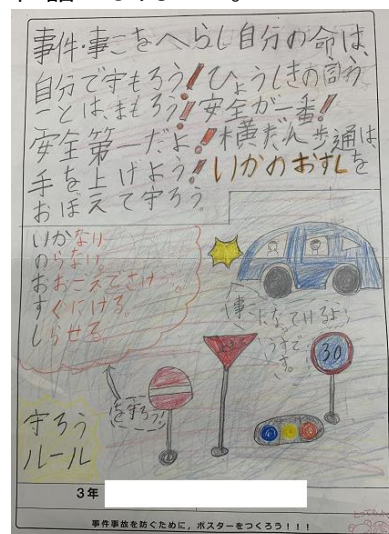 事件・事こをへらし自分の命は、
自分で守もろう!ひょうしきの言う
ことは、まもろう!安全が一番!
安全第一だよ!横だん歩通は
手を上げよう!いかのおすしを
おぼえて守ろう。
いかない
のらない
おおごえでさけぶ。
すぐにげる。
しらせる。
事こ
30
を守ろう!
守ろう
ルール
3年
事件事故を防ぐために、ポスターをつくろう!!!